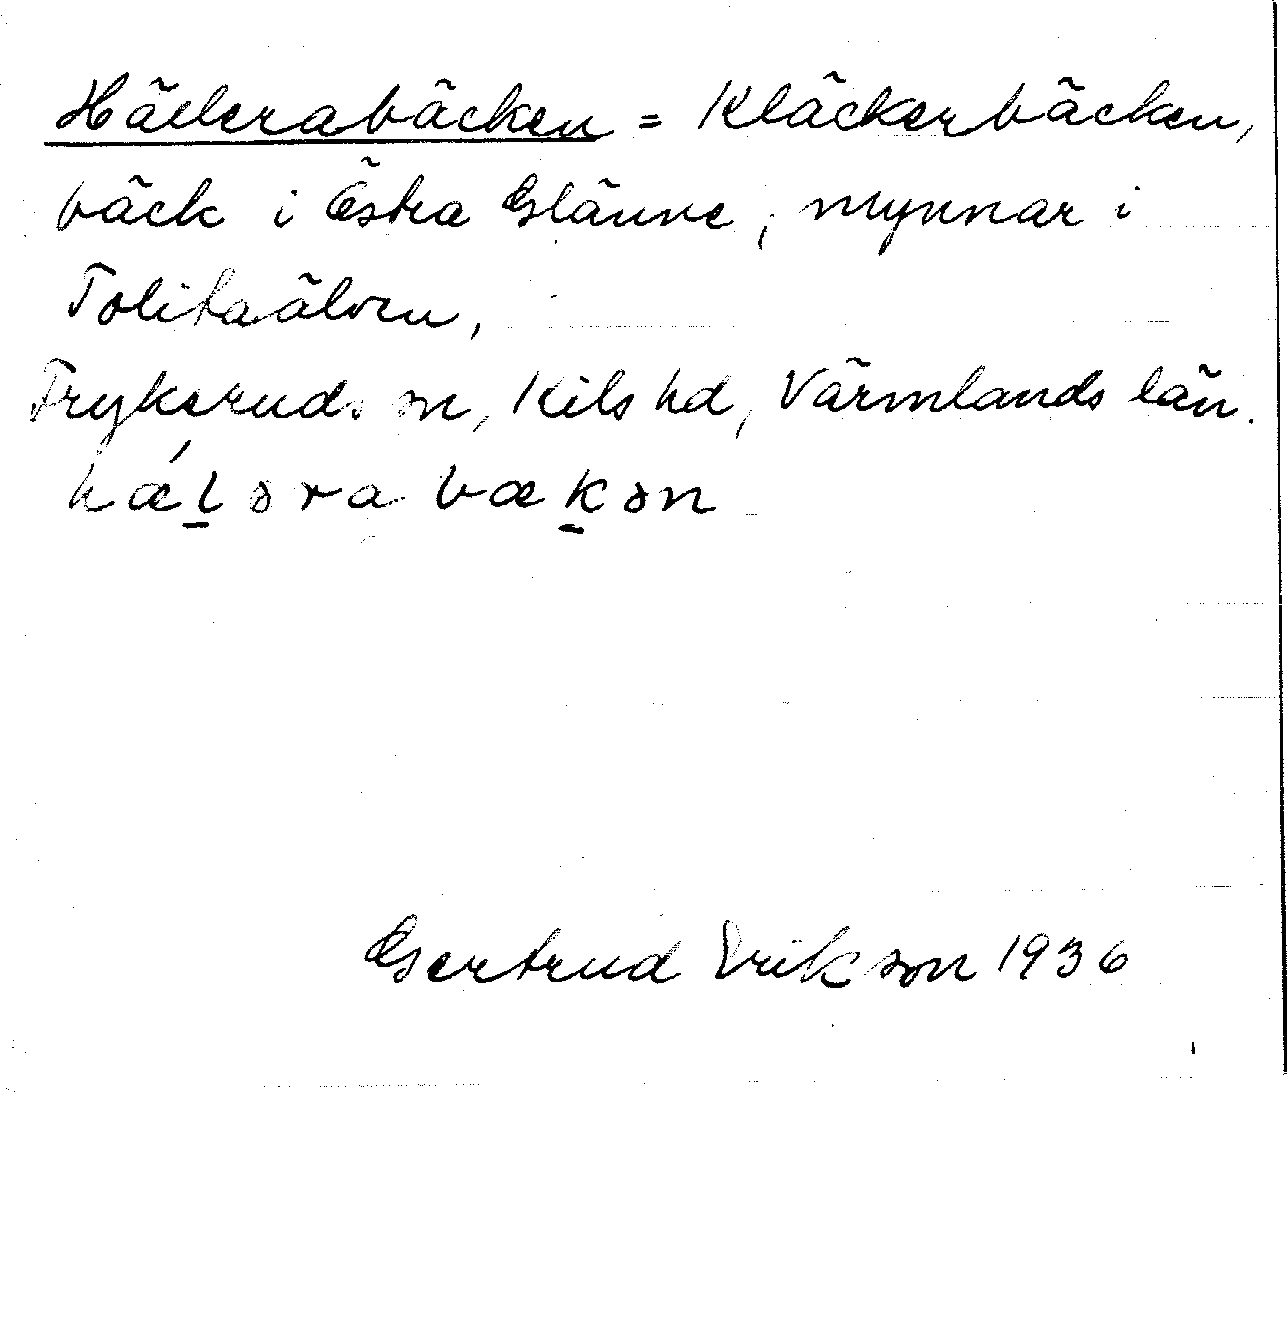 Hällerabäcken = Kläckerbäcken,
bäck i Östra Glänne, mynnar i
Tolitaälven,
Frykeruds sn, Kils hd, Värmlands län.
hǽl̠əra bæk̠ən
Gertrud Erikson 1936